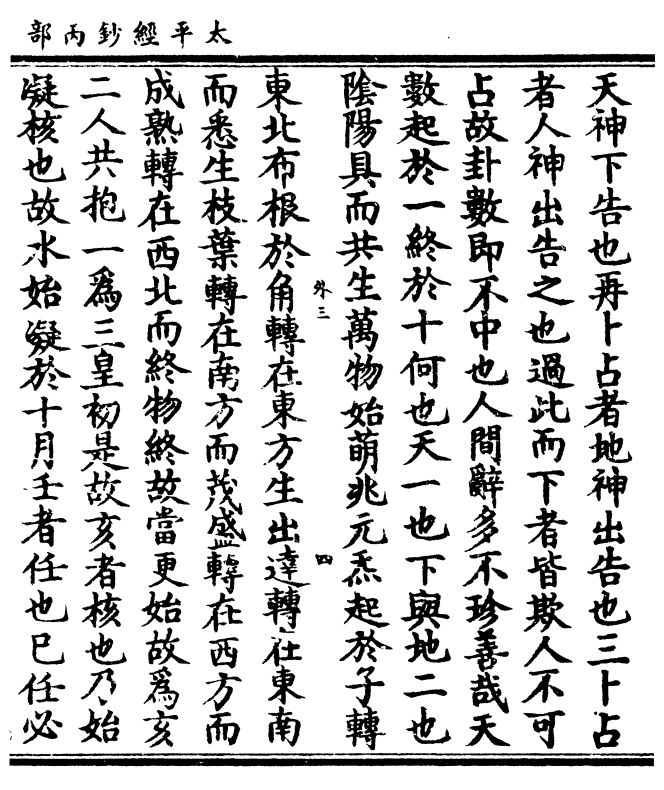 太平經鈔丙部
天神下告也再卜占者地神出告也三卜占
者人神出告之也過此而下者皆欺人不可
占故卦數即不中也人間辭多不珍善哉天
數起於一終於十何也天一也下與地二也
陰陽具而共生萬物始萌兆元炁起於子轉
外三
四
東北布根於角轉在東方生出達轉在東南
而悉生枝葉轉在南方而茂盛轉在西方而
成熟轉在西北而終物終故當更始故爲亥
二人共抱一爲三皇初是故亥者核也乃始
凝核也故水始凝於十月壬者任也巳任必